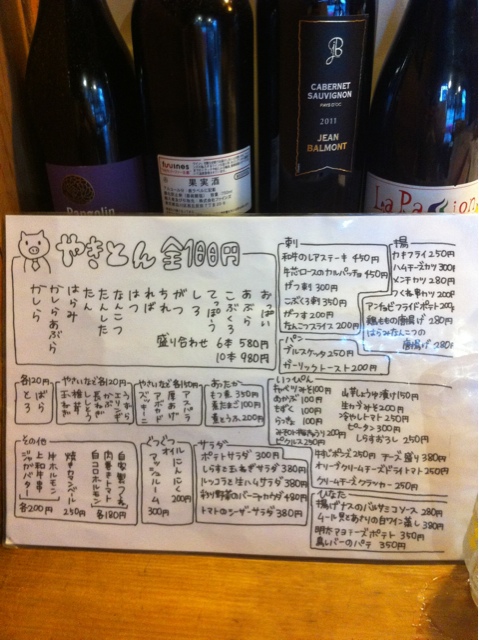 CABERNET
SAUVIGNON
PAYS D'OC
2011
JEAN
BALMONT
Pangolin
果実酒
La Pa
やきとん 全100円
おっぱい
あぶら
こぶくろ
てっぽう
しろ
がつ
ちれ
はつ
ればー
なんこつ
たんしたっ
たん
はらみ
かしらあぶら
かしら
盛り合わせ 6本 580円
10本 980円
刺
和牛のレアステーキ 450円
牛芯ロースのカルパッチョ 450円
がつ刺 300円
こぶくろ刺 350円
がつす 200円
なんこつスライス 200円
揚
カキフライ 250円
ハムチーズカツ 300円
メンチカツ 280円
つくね串カツ 200円
アンチョビフライドポテト 200円
鶏ももの唐揚げ 280円
はらみなんこつの
唐揚げ 280円
パン
ブルスケッタ 250円
ガーリックトースト 200円
各120円
ばら
とろ
やさい など 各120円
うずら
エリンギ
かぶ
長ねぎ
ししとう
椎茸
玉ねぎ
やさいなど 各150円
アスパラ
厚あげ
アボカド
ズッキーニ
あったか
もつ煮 350円
煮たまご 100円
煮とうふ 200円
いっぴん
キャベツみそ 100円
めかぶ 100円
もずく 100円
らっきょ 100円
ピクルス 250円
山芋しょうゆ漬け 150円
生かつみそ 200円
冷やしトマト 250円
ピータン 300円
しらすおろし 250円
牛もじポーズ 250円 チーズ盛り 380円
オリーブクリームチーズドライトマト 250円
クリームチーズクラッカー 250円
その他
自家製つくね
肉巻きトマト
白コロホルモン
各180円
焼きタンバター
250円
牛ホルモン
上和牛串
ジャガバター
各200円
ぐつぐつ
オイル
にんにく
200円
マッシュルーム
300円
サラダ
ポテトサラダ 300円
しらすと玉ねぎサラダ 380円
ルッコラと生ハムサラダ 380円
わけ野菜のバーニャカウダ 480円
トマトのシーザーサラダ 380円
ひなた
揚げナスのバルサミコソース 280円
ムール貝とあさりの白ワイン蒸し 380円
明太マヨチーズポテト 350円
鳥レバーのパテ 350円